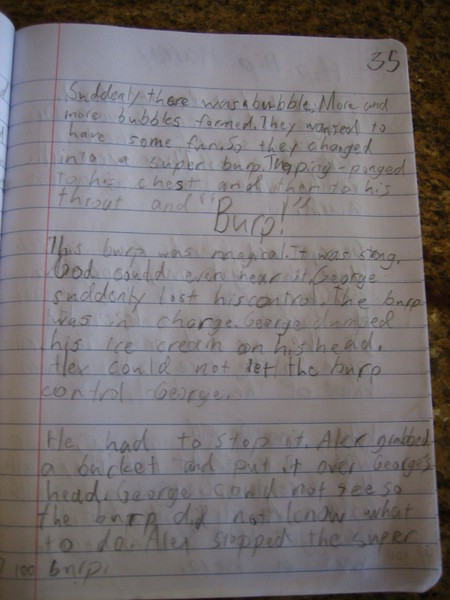 35
Suddenly there was a bubble. More and
more bubbles formed. They wanted to
have some fun. So they changed
into a super burp. They ping-ponged
to his chest and then to his
throat and
"Burp!"
This burp was magical. It was strong.
God could even hear it. George
suddenly lost his control. The burp
was in charge. George dumped
his ice cream on his head.
Alex could not let the burp
control George.
He had to stop it. Alex grabbed
a bucket and put it over George's
head. George could not see so
the burp did not know what
to do. Alex stopped the super
burp.
100